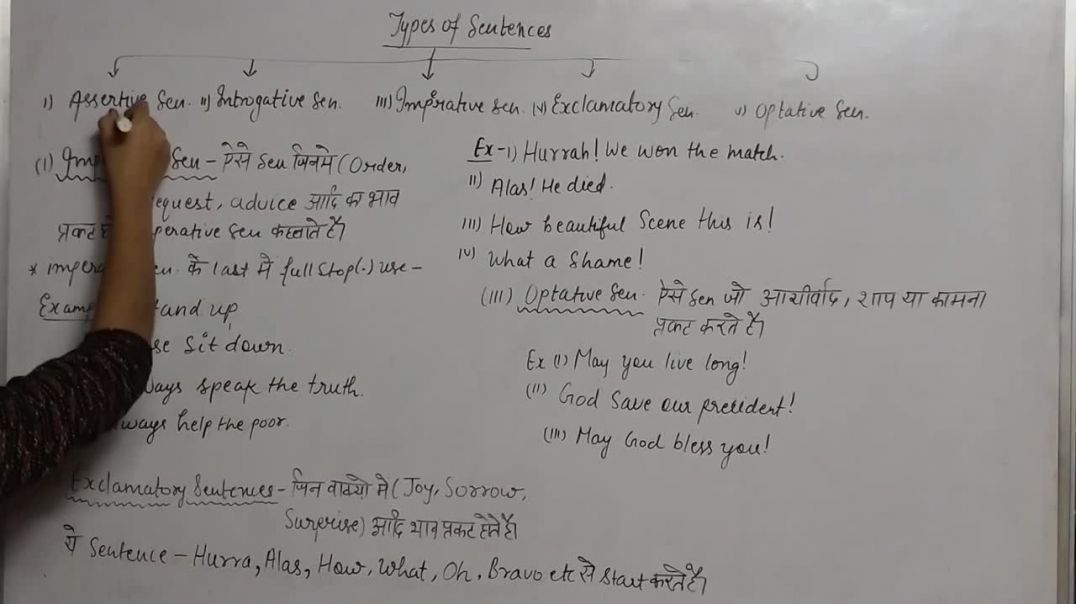 Types of Sentences
i) Assertive Sen. ii) Introgative Sen. iii) Imperative Sen. iv) Exclamatory Sen. v) Optative Sen.
(i) Sen - ऐसे Sen जिनमे (Order,
equest, advice आदि का भाव
प्रकट perative Sen कहलाते है।
* imper en. के last मे full stop (.) use -
Exam tand up,
se Sit down.
ways speak the truth.
lways help the poor.
Exclamatory Sentences - जिन वाक्यो मे (Joy, Sorrow,
Surprise) आदि भाव प्रकट होते है।
ये Sentence - Hurra, Alas, How, What, Oh, Bravo etc से start करते है।
Ex - i) Hurrah! We won the match.
ii) Alas! He died.
iii) How beautiful Scene this is!
iv) What a Shame!
(iii) Optative Sen. ऐसे Sen जो आशीर्वाद, शाप या कामना
प्रकट करते है।
Ex (i) May you live long!
(ii) God Save our president!
(iii) May God bless you!